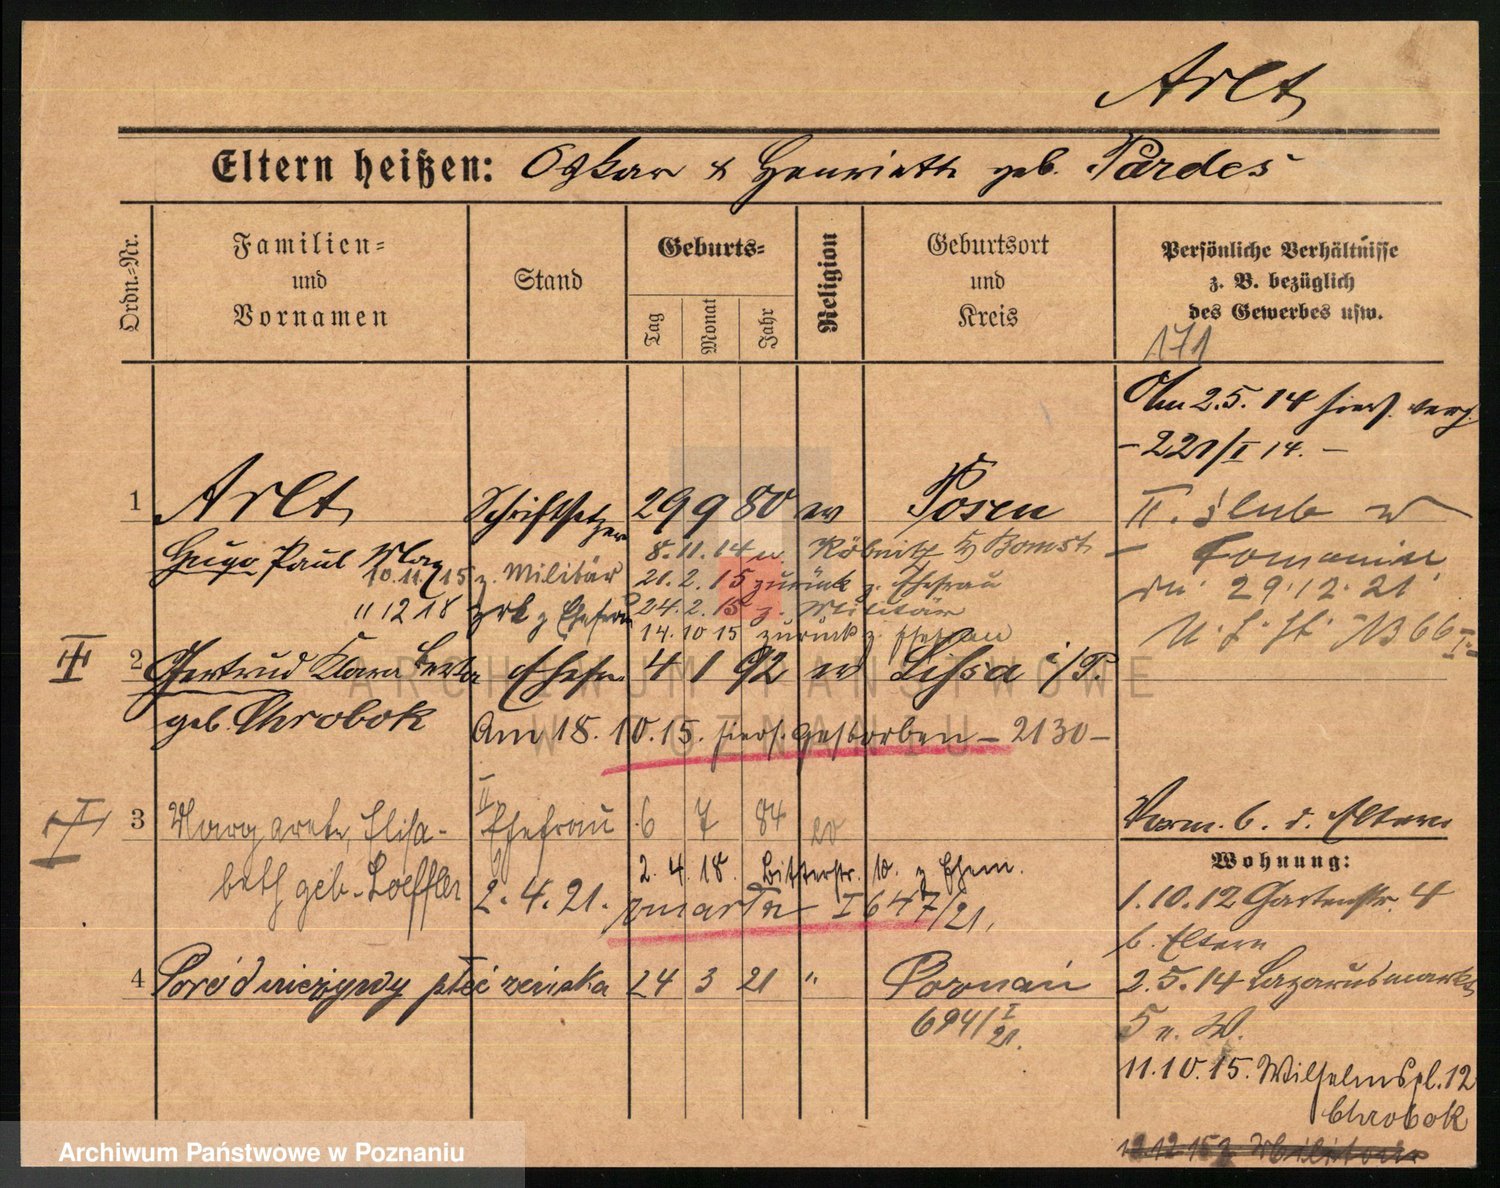 Arlt
Eltern heißen: Oskar & Henriette geb. Pardes
Ordn.=Nr.
Familien=
und
Vornamen
Stand
Geburts=
Tag
Monat
Jahr
Religion
Geburtsort
und
Kreis
Persönliche Verhältnisse
z. B. bezüglich
des Gewerbes usw.
171
Am 2.5.14 hies. verh.
– 221/I 14. –
1 Arlt Schriftsetzer 29 9 80 ev Posen
II. ślub w
Hugo Paul Max 8.11.14 n. Bomst
Tomaniu
10.11.15 z. Militär 21.2.15 zurück z. Ehefrau
dn. 29.12.21
11 12 18 zrk z Ehefrau 24.2.15 z. Militär
14.10 15 zurück z. Ehefrau
II
2 Gertrud Klara Berta Ehefr. 4 1 92 ev Lissa i/P.
geb. Chrobok Am 18.10.15. hies. gestorben – 2130 –
I
3 Margarete, Elisa- II Ehefrau 6 7 84 ev
Vorm. b. d. Eltern
Wohnung:
beth geb. Loeffler 2.4.18. Bitterstr. 10. z Ehem.
2.4.21. zmarła I 647/21.
1.10.12 Gartenstr. 4
b. Eltern
4 Poród nieżywy płeć żeńska 24 3 21 " Poznań
694/I 21.
2.5.14 Lazarusmarkt
5 n. W.
11.10.15. Wilhelmspl. 12
Chrobok
12.12.15 z Militär
ARCHIWUM PAŃSTWOWE
W POZNANIU
Archiwum Państwowe w Poznaniu